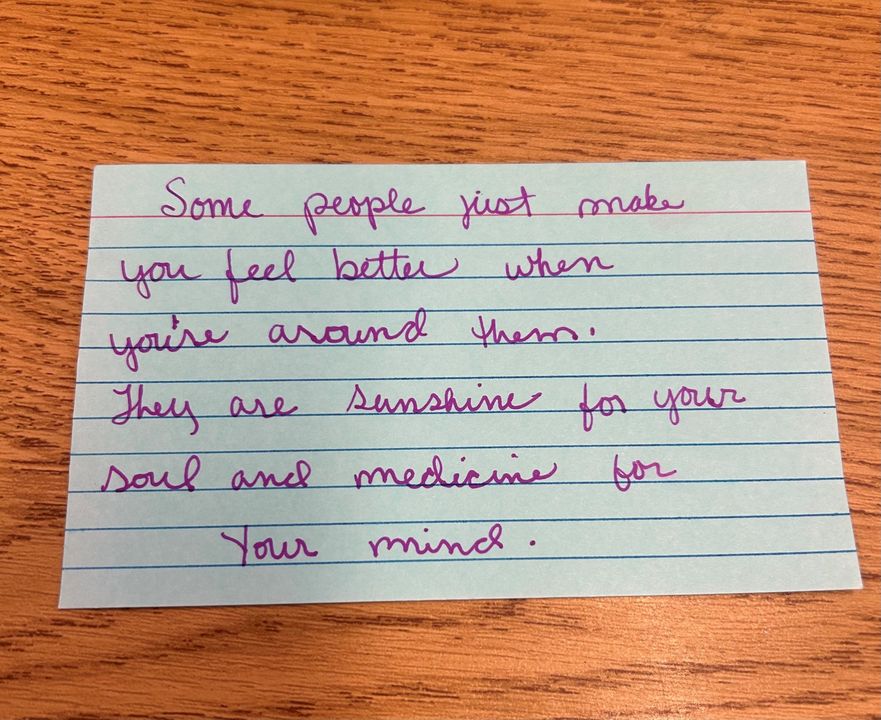 Some people just make
you feel better when
you're around them.
They are sunshine for your
soul and medicine for
Your mind.